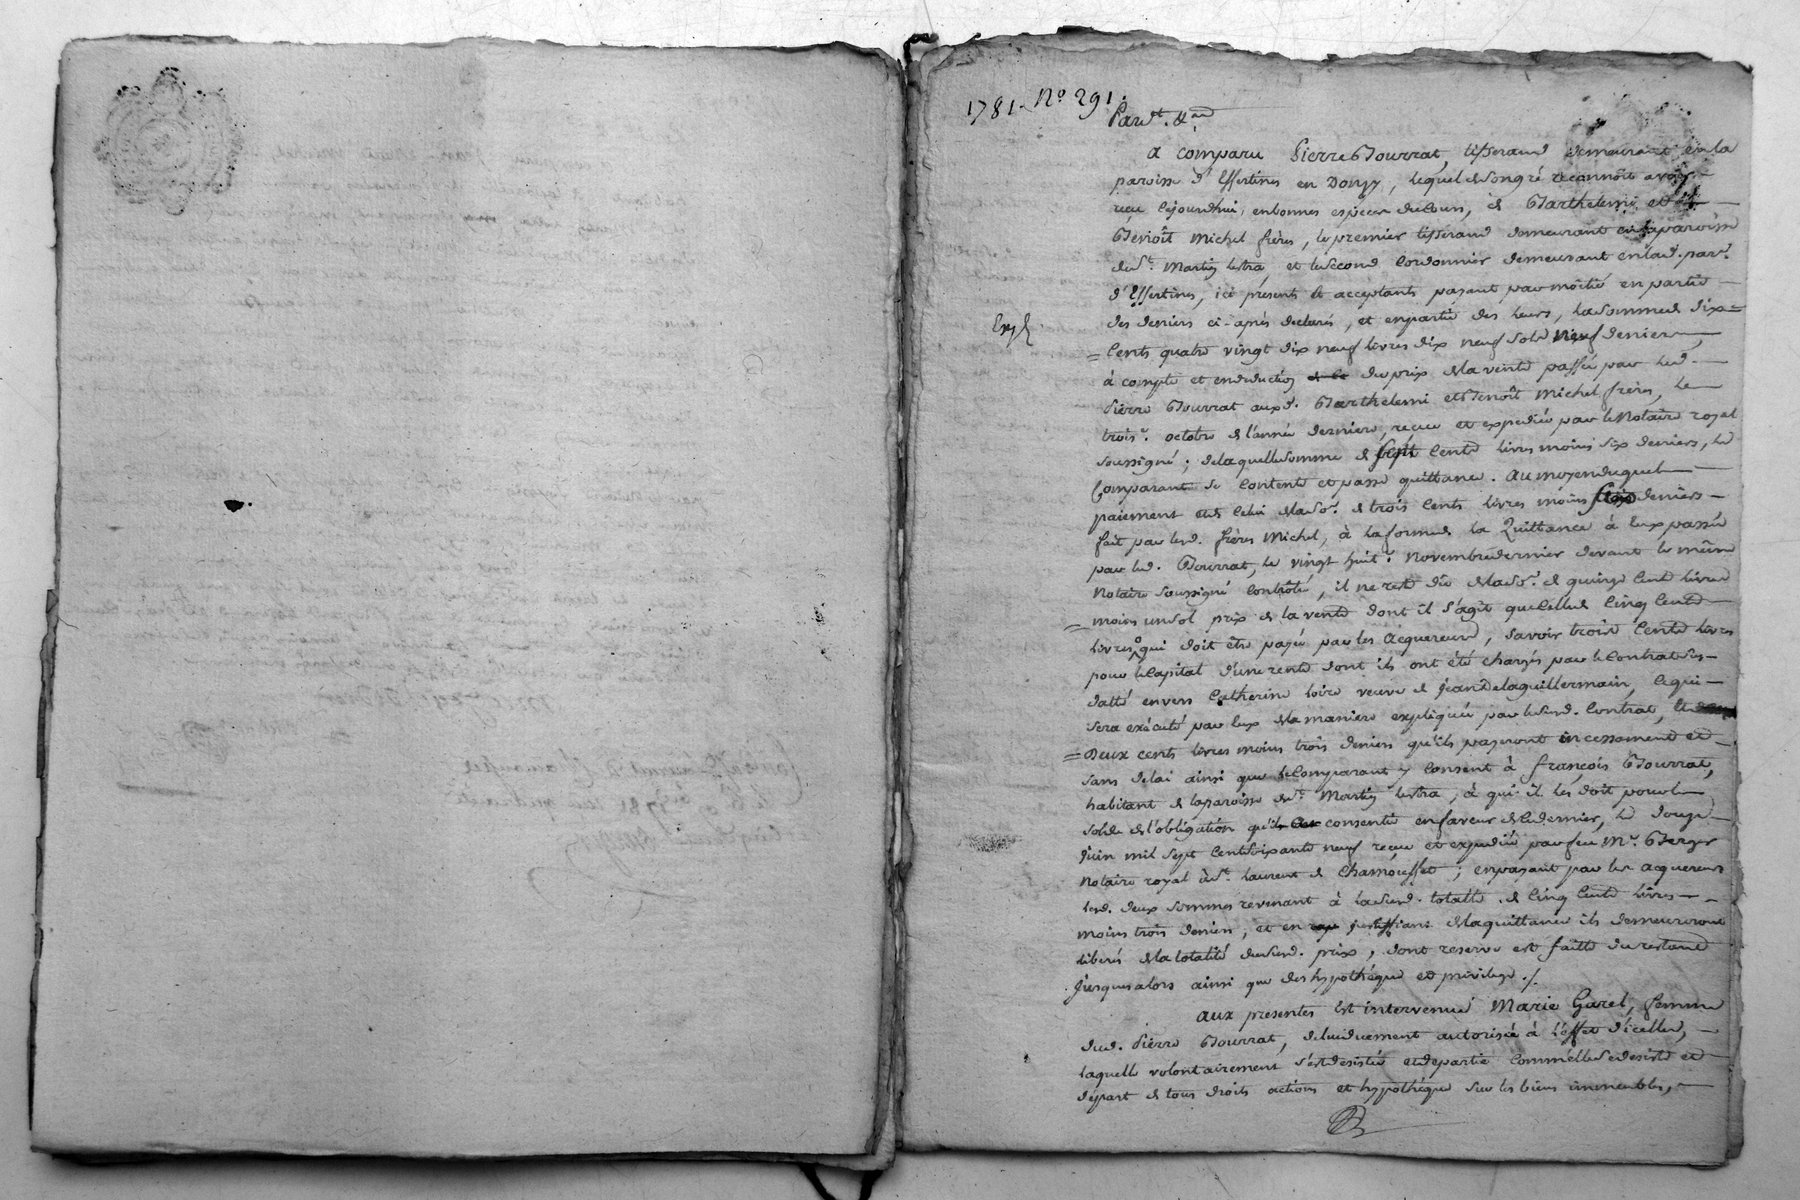 1781. No 291.
Pardt. &a
a comparu Pierre Bourrat, tisserand demeurant en la
paroisse d'Essertines en Donzy, lequel de son gré reconnoit avoir
reçu cejourdhui, en bonnes especes du cours, de Barthelemi et
Benoît Michel frères, le premier tisserand demeurant en la paroisse
de St. Martin lestra, et le second Cordonnier demeurant en lad. parse.
d'Essertines, ici présents et acceptants payant par moitié en partie
des deniers ci-après declarés, et en partie des leurs, la somme de dix=
Expé
=Cents quatre vingt dix neuf livres dix neuf sols neuf deniers,
à compte et en deduction du prix de la vente passée par led.
Pierre Bourrat auxd. Barthelemi et Benoît Michel frères, le
troise. octobre de l'année derniere, reçue et expediée par le Notaire royal
soussigné; de laquelle somme de sept Cents livres moins six deniers, le
Comparant se contente et passe quittance. Au moyen duquel
paiement et de celui de la so. de trois cents livres moins deniers
fait par lesd. frères Michel, à la forme de la Quittance à eux passée
par led. Bourrat, le vingt huite. Novembre dernier devant le même
Notaire soussigné Contrôlé, il ne reste du de la so. de quinze Cents livres
=moins un sol prix de la vente dont il s'agit que celle de Cinq Cents
livres qui doit être payée par les acquereurs, savoir trois Cents livres
pour le Capital d'une rente dont ils ont été chargés par le Contrat sus-
datté envers Catherine loire veuve de Jean Delaguillermain, ce qui
sera exécuté par eux de la maniere expliquée par le susd. Contrat, et
=Deux cents livres moins trois deniers qu'ils payeront incessament et
sans delai ainsi que le Comparant y consent à françois Bourrat,
habitant de la paroisse de St. Martin lestra, à qui il les doit pour le
solde de l'obligation qu'il consentie en faveur de ce dernier, le douze
Juin mil sept cent soixante neuf reçue et expediée par feu Me. Berger
Notaire royal à St. Laurent de Chamousset; en payant par les acquereurs
lesd. deux sommes revenant à la susd. totalle de Cinq Cents livres
moins trois deniers, et en justifiant de la quittance ils demeureront
libérés de la totalité du susd. prix, dont reserve est faitte du restant
jusques alors ainsi que des hypothéque et privilege./.
aux presentes est intervenue Marie Garel, femme
dud. Pierre Bourrat, de lui dûement autorisée à l'effet d'icelles,
laquelle volontairement s'est desistée et departie comme elle se desiste et
départ de tous droits actions et hypothéque sur les biens immeubles,